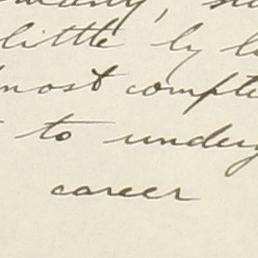 little by l
most comple
to underg
career